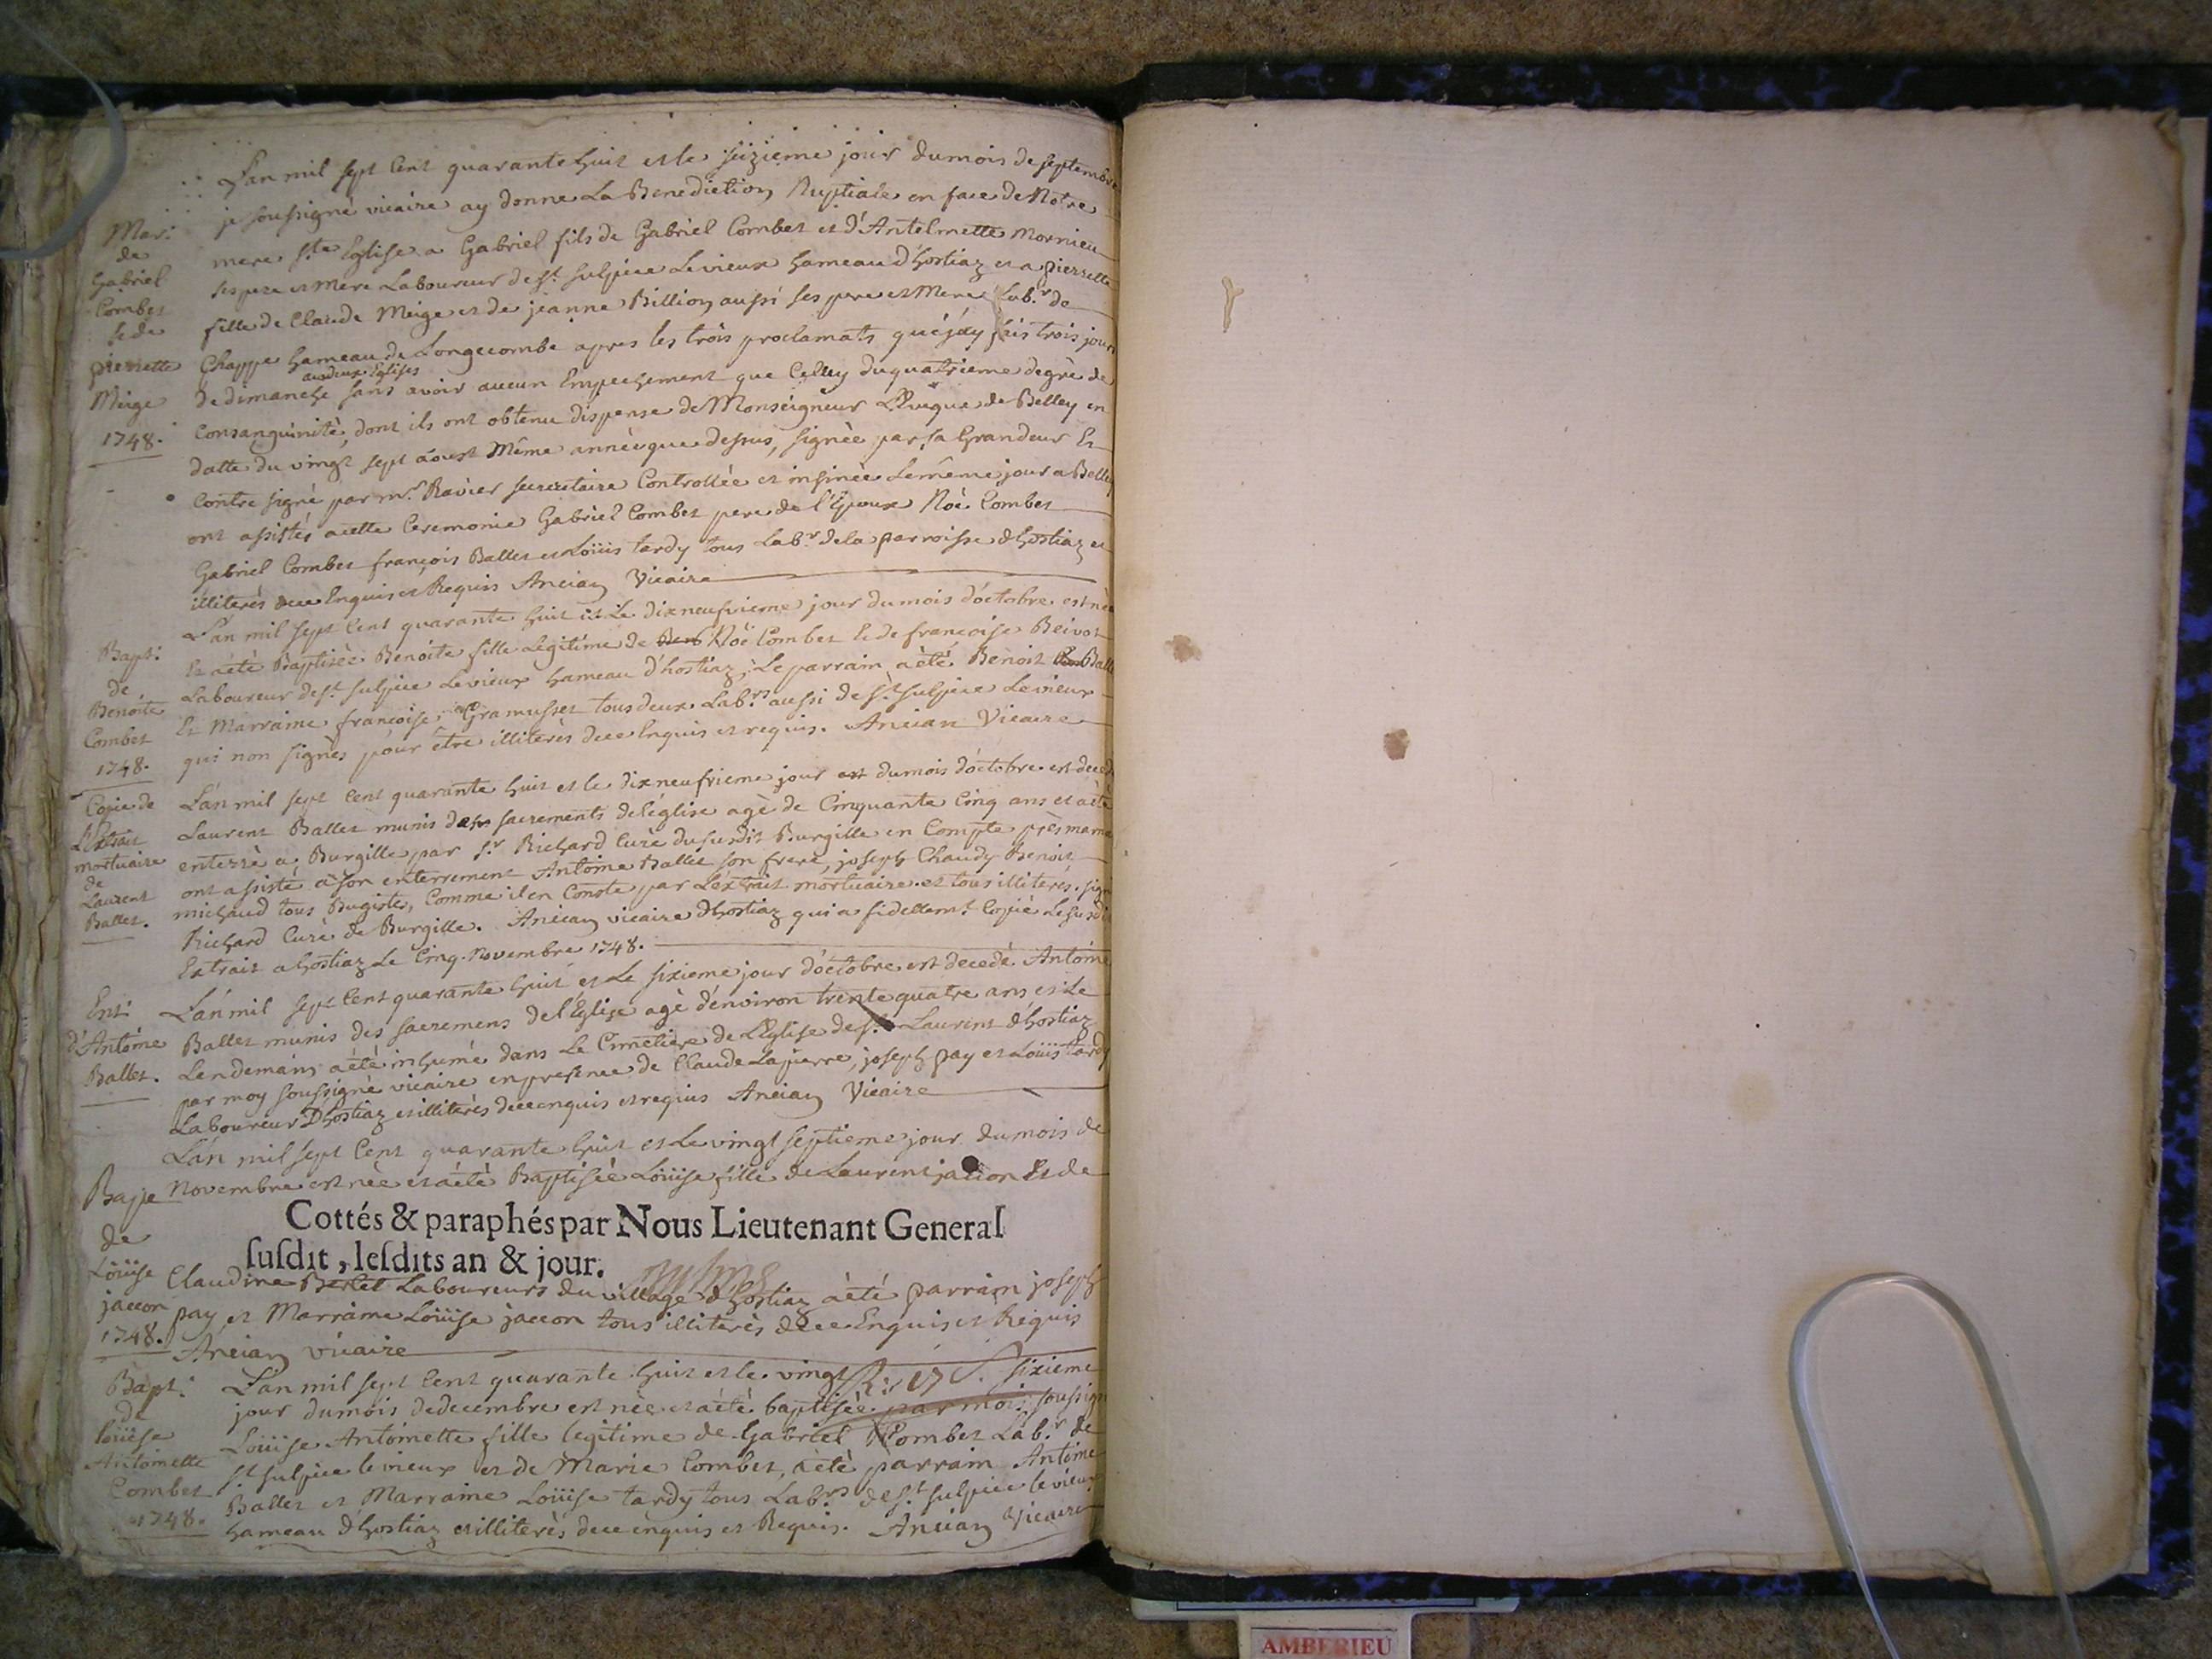 L'an mil sept Cent quarante huit et le seizieme jour du mois de septembre
je soussigné vicaire ay donne La Benediction Nuptiale en face de Notre
Mar:
mere ste Eglise a Gabriel fils de Gabriel Combet et d'Antelmette Mornieu
de
ses pere et mere Laboureur de st sulpice Le vieux hameau d'hostiaz et a pierrette
Gabriel
fille de Claude Meige et de jeanne Billion aussi ses pere et Mere Lab.r de
Combet
& de
Chappe hameau de Longecombe apres les trois proclamats que j'ay fais trois jours
pierrette
aux deux Eglises
de dimanche sans avoir aucun Empechement que Celuy du quatrieme degrè de
Meige
Consanguinité, dont ils ont obtenu dispense de Monseigneur L'Eveque de Belley en
1748.
datte du vingt sept aoust Même année que dessus, signée par sa Grandeur Et
Contre signé par mr. Ravier secretaire Controllée et insinée Le même jour a Belley
ont assistés a cette Ceremonie Gabriel Combet pere de l'Epoux Noè Combet
Gabriel Combet françois Ballet et Loüis tardy tous Lab.r de la parroisse d'hostiaz et
illiterès de ce Enquis et Requis Ancian Vicaire
L'an mil sept Cent quarante huit et Le dixneufvieme jour du mois d'octobre est née
Bapt:
Et a été Baptisée Benoite fille Legitime de Ben Noë Combet & de francoise Beivot
de
Laboureur de st sulpice Le vieux hameau d'hostiaz; Le parrain a èté Benoit Ballet
Benoite
Et Marraine francoise Gramusset tous deux Lab.rs aussi de st sulpice Le vieux
Combet
qui non signès pour être illiterès de ce Enquis et requis. Ancian Vicaire
1748.
Copie de
L'an mil sept Cent quarante huit et le dixneufvieme jour est du mois d'octobre est decedé
L'Extrait
Laurent Ballet munis des sacrements de l'eglise agè de Cinquante Cinq ans et a èté
mortuaire
enterrè a Burgille par sr Richard Curè du susdit Burgille en Compte près marna
de
ont assisté a son enterrement Antoine Ballet son frere, joseph Chaudy Benoit
Laurent
michaud tous Bugistes, Comme il en Conste par L'extrait mortuaire et tous illiterès. signé
Ballet.
Richard Curè de Burgille. Ancian vicaire d'hostiaz qui a fidellem.t Copié Le susdit
Extrait a hostiaz Le Cinq Novembre 1748.
Ent:
L'an mil sept Cent quarante huit et Le sixieme jour d'octobre est decedé Antoine
d'Antoine
Ballet munis des sacremens de l'Eglise agè d'environ trente quatre ans et Le
Ballet.
Lendemain a èté inhumé dans Le Cimetiere de L'Eglise de st Laurent d'hostiaz
par moy soussigné vicaire en presence de Claude Lapierre, joseph pay et Loüis tardy
Laboureur D'hostiaz et illiterès de ce enquis et requis Ancian Vicaire
L'an mil sept Cent quarante huit et Le vingt septieme jour du mois de
Bapt
Novembre est née et a été Baptisée Loüise fille de Laurent jaccon Et de
Cottés & paraphés par Nous Lieutenant General
susdit, lesdits an & jour.
de
Loüise
Claudine Berlet Laboureurs du village d'hostiaz a èté parrain joseph
jaccon
pay et Marraine Loüise jaccon tous illiterès de ce Enquis et Requis
1748.
Ancian vicaire
Bapt:
L'an mil sept Cent quarante huit et le vingt sixieme
de
jour du mois de decembre est née et a été baptisée par moi soussigné
Loüise
Loüise Antoinette fille legitime de Gabriel Combet Lab.r de
Antoinette
st sulpice le vieux et de Marie Combet, a èté parrain Antoine
Combet
Ballet et Marraine Loüise tardy tous Lab.rs de st sulpice le vieux
1748.
hameau d'hostiaz et illiterès de ce enquis et Requis. Ancian Vicaire
AMBERIEU